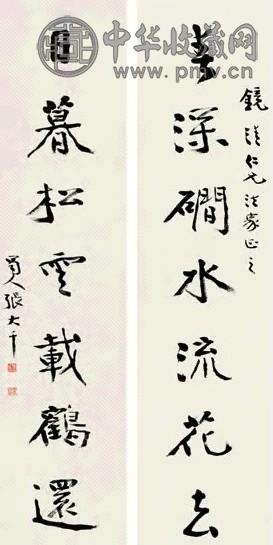 中华收藏网
www.pmv.cn
鏡仁兄法家正之
春深磵水流花去
日暮松雲載鶴還
蜀人張大千